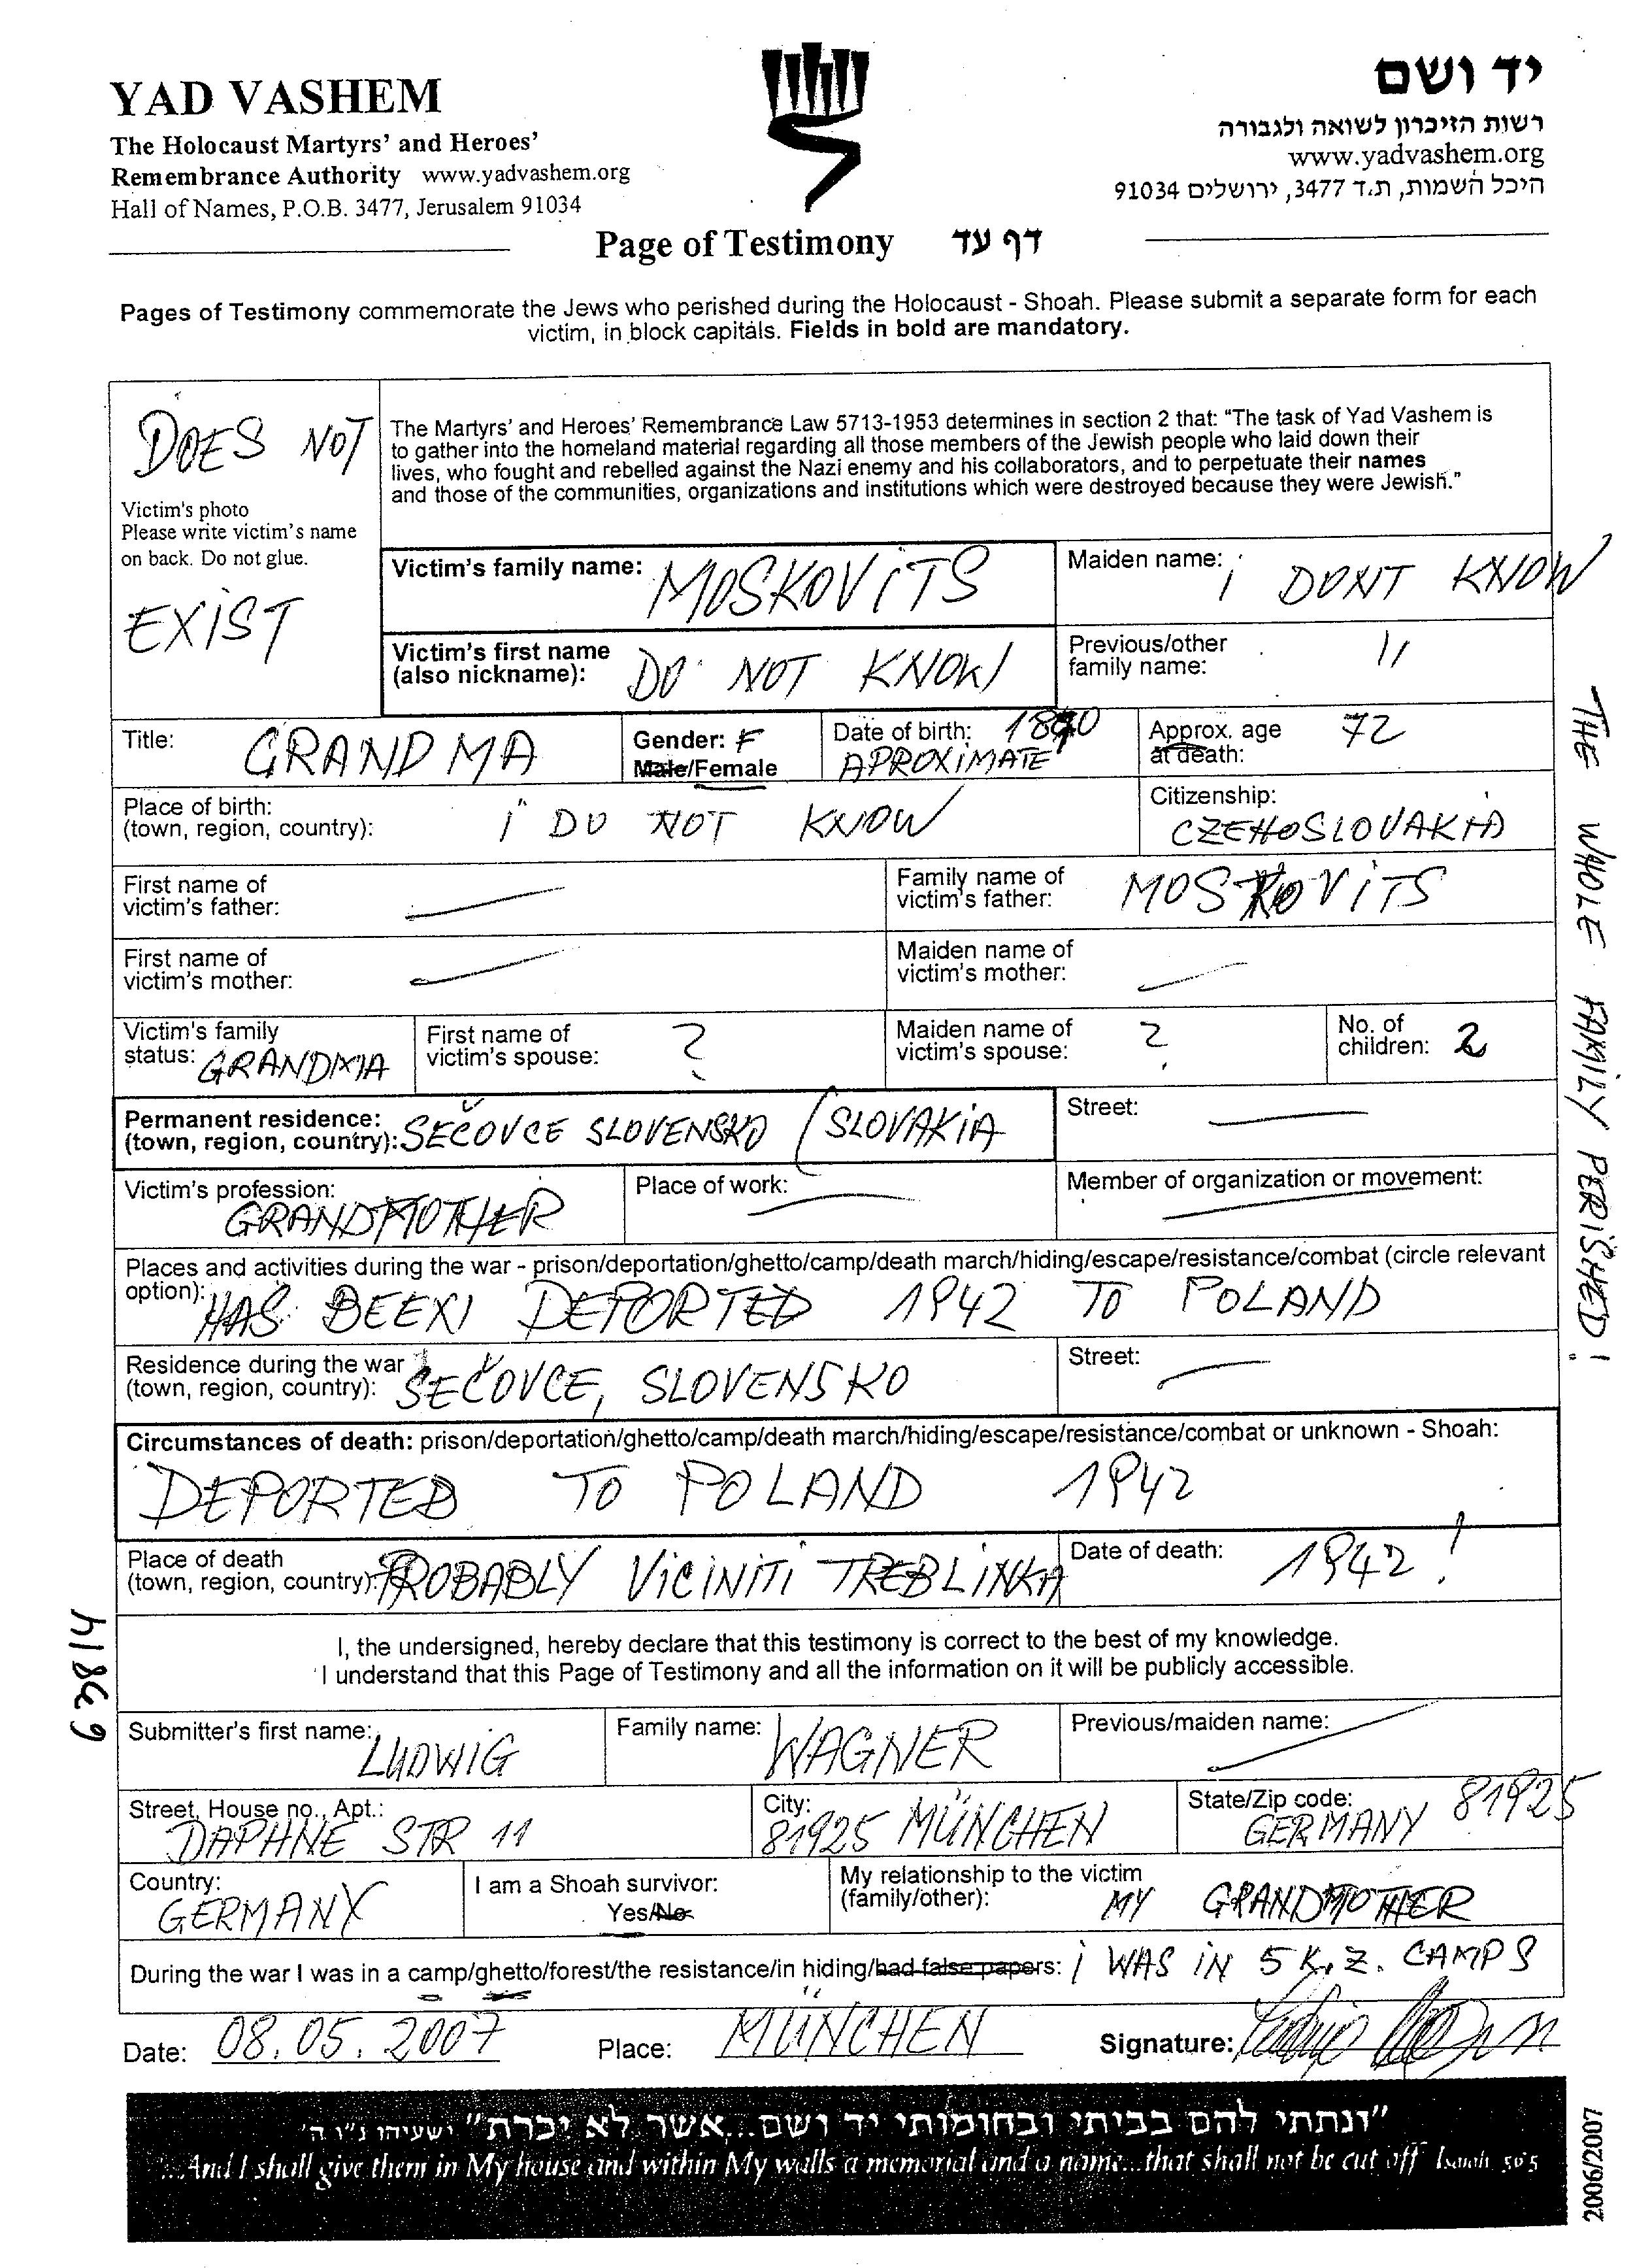 YAD VASHEM
The Holocaust Martyrs' and Heroes'
Remembrance Authority www.yadvashem.org
Hall of Names, P.O.B. 3477, Jerusalem 91034
יד ושם
רשות הזיכרון לשואה ולגבורה
www.yadvashem.org
היכל השמות, ת.ד 3477, ירושלים 91034
Page of Testimony דף עד
Pages of Testimony commemorate the Jews who perished during the Holocaust - Shoah. Please submit a separate form for each
victim, in block capitals. Fields in bold are mandatory.
DOES NOT
Victim's photo
Please write victim's name
on back. Do not glue.
EXIST
The Martyrs' and Heroes' Remembrance Law 5713-1953 determines in section 2 that: "The task of Yad Vashem is
to gather into the homeland material regarding all those members of the Jewish people who laid down their
lives, who fought and rebelled against the Nazi enemy and his collaborators, and to perpetuate their names
and those of the communities, organizations and institutions which were destroyed because they were Jewish."
Victim's family name: MOSKOVITS
Maiden name: I DONT KNOW
Victim's first name
(also nickname): DO NOT KNOW
Previous/other
family name: 11
Title: GRANDMA
Gender: F
Male/Female
Date of birth: 1870
APROXIMATE
Approx. age
at death: 72
Place of birth:
(town, region, country): I DO NOT KNOW
Citizenship:
CZEHOSLOVAKIA
First name of
victim's father:
Family name of
victim's father: MOSKOVITS
First name of
victim's mother:
Maiden name of
victim's mother:
Victim's family
status: GRANDMA
First name of
victim's spouse: ?
Maiden name of
victim's spouse: ?
No. of
children: 2
Permanent residence:
(town, region, country): SEČOVCE SLOVENSKO (SLOVAKIA
Street:
Victim's profession:
GRANDMOTHER
Place of work:
Member of organization or movement:
Places and activities during the war - prison/deportation/ghetto/camp/death march/hiding/escape/resistance/combat (circle relevant
option): HAS BEEN DEPORTED 1942 TO POLAND
Residence during the war
(town, region, country): SEČOVCE, SLOVENSKO
Street:
Circumstances of death: prison/deportation/ghetto/camp/death march/hiding/escape/resistance/combat or unknown - Shoah:
DEPORTED TO POLAND 1942
Place of death
(town, region, country): PROBABLY VICINITI TREBLINKA
Date of death: 1942!
I, the undersigned, hereby declare that this testimony is correct to the best of my knowledge.
I understand that this Page of Testimony and all the information on it will be publicly accessible.
Submitter's first name: LUDWIG
Family name: WAGNER
Previous/maiden name:
Street, House no., Apt.:
DAPHNE STR 11
City:
81925 MÜNCHEN
State/Zip code: 81925
GERMANY
Country:
GERMANY
I am a Shoah survivor:
Yes/No
My relationship to the victim
(family/other): MY GRANDMOTHER
During the war I was in a camp/ghetto/forest/the resistance/in hiding/had false papers: I WAS IN 5 K.Z. CAMPS
Date: 08.05.2007 Place: MÜNCHEN Signature:
"ונתתי להם בביתי ובחומותי יד ושם...אשר לא יכרת" ישעיהו נ"ו ה'
...And I shall give them in My house and within My walls a memorial and a name...that shall not be cut off Isaiah 56:5
THE WHOLE FAMILY PERISHED!
63814
2006/2007